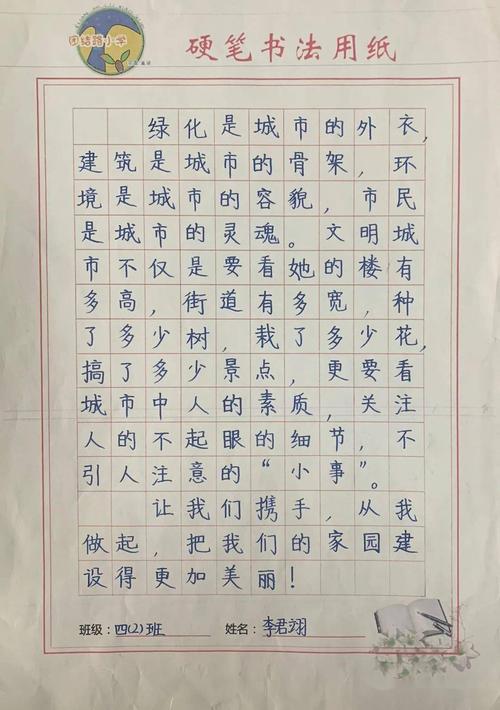 团结路小学
硬笔书法用纸
绿化是城市的外衣，
建筑是城市的骨架，环
境是城市的容貌，市民
是城市的灵魂。文明城
市不仅是要看她的楼有
多高，街道有多宽，种
了多少树，栽了多少花，
搞了多少景点，更要看
城市中人的素质，关注
人的不起眼的细节，不
引人注意的“小事”。
让我们携手，从我
做起，把我们的家园建
设得更加美丽！
班级：四(2)班 姓名：李君翊